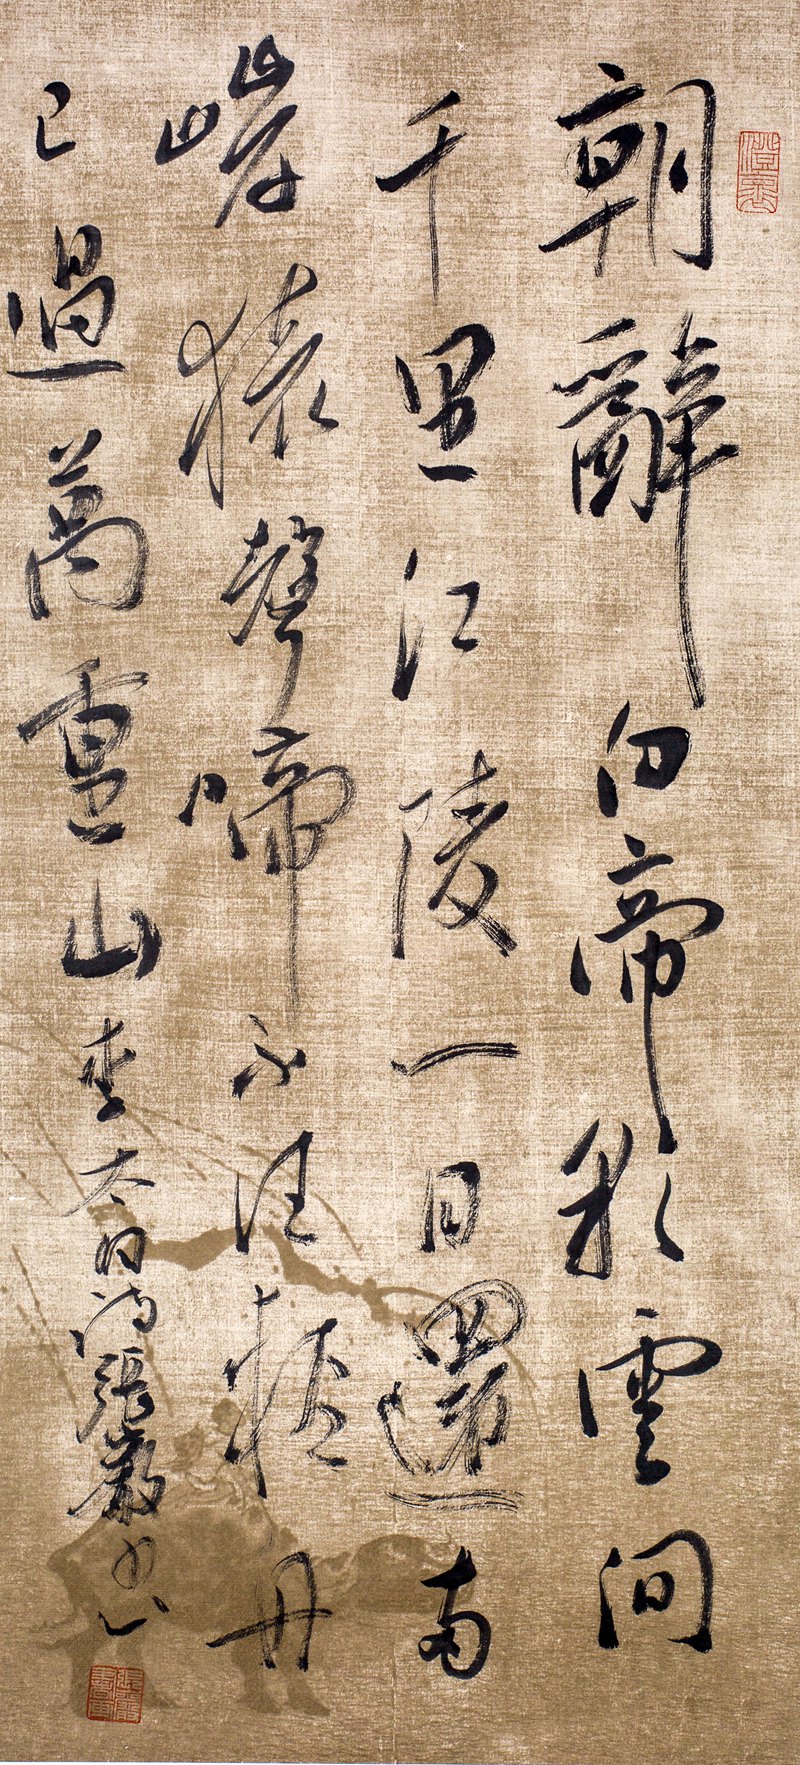 朝辭白帝彩雲間
千里江陵一日還兩
岸猿聲啼不住輕舟
已過萬重山李太白詩張嚴書
張嚴書畫